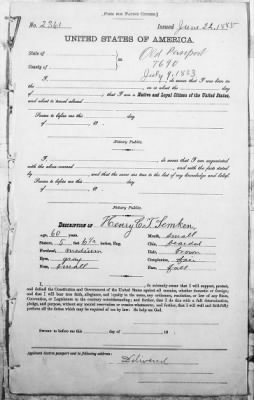 [FORM FOR NATIVE CITIZEN.]
No. 2361 Issued June 22, 1885
UNITED STATES OF AMERICA.
State of
County of
Old Passport
7690
July 9, 1883
I, do swear that I was born in
on or about the day
of , that I am a Native and Loyal Citizen of the United States,
and about to travel abroad
Sworn to before me this day
of , 18
Notary Public.
I, do swear that I am acquainted
with the above named and with the facts stated
by and that the same are true to the best of my knowledge and belief.
Sworn to before me this day
of , 18
Notary Public.
DESCRIPTION OF Henry C. T. Lemken
Age, 60 years. Mouth, small
Stature, 5 feet 6½ inches, Eng. Chin, bearded
Forehead, medium Hair, brown
Eyes, gray Complexion, fair
Nose, small Face, full
I, , do solemnly swear that I will support, protect,
and defend the Constitution and Government of the United States against all enemies, whether domestic or foreign;
and that I will bear true faith, allegiance, and loyalty to the same, any ordinance, resolution, or law of any State,
Convention, or Legislature to the contrary notwithstanding; and further, that I do this with a full determination,
pledge, and purpose, without any mental reservation or evasion whatsoever; and further, that I will well and faithfully
perform all the duties which may be required of me by law: So help me God.
Sworn to before me this day of , 18
Applicant desires passport sent to following address:
Delivered